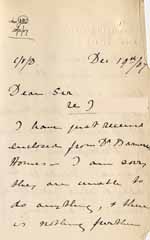 Dec 19th/07
Dear Sir
re J
I have just received
enclosed from Dr Barnardo
Homes – I am sorry
they are unable to
do anything, & there
is nothing further